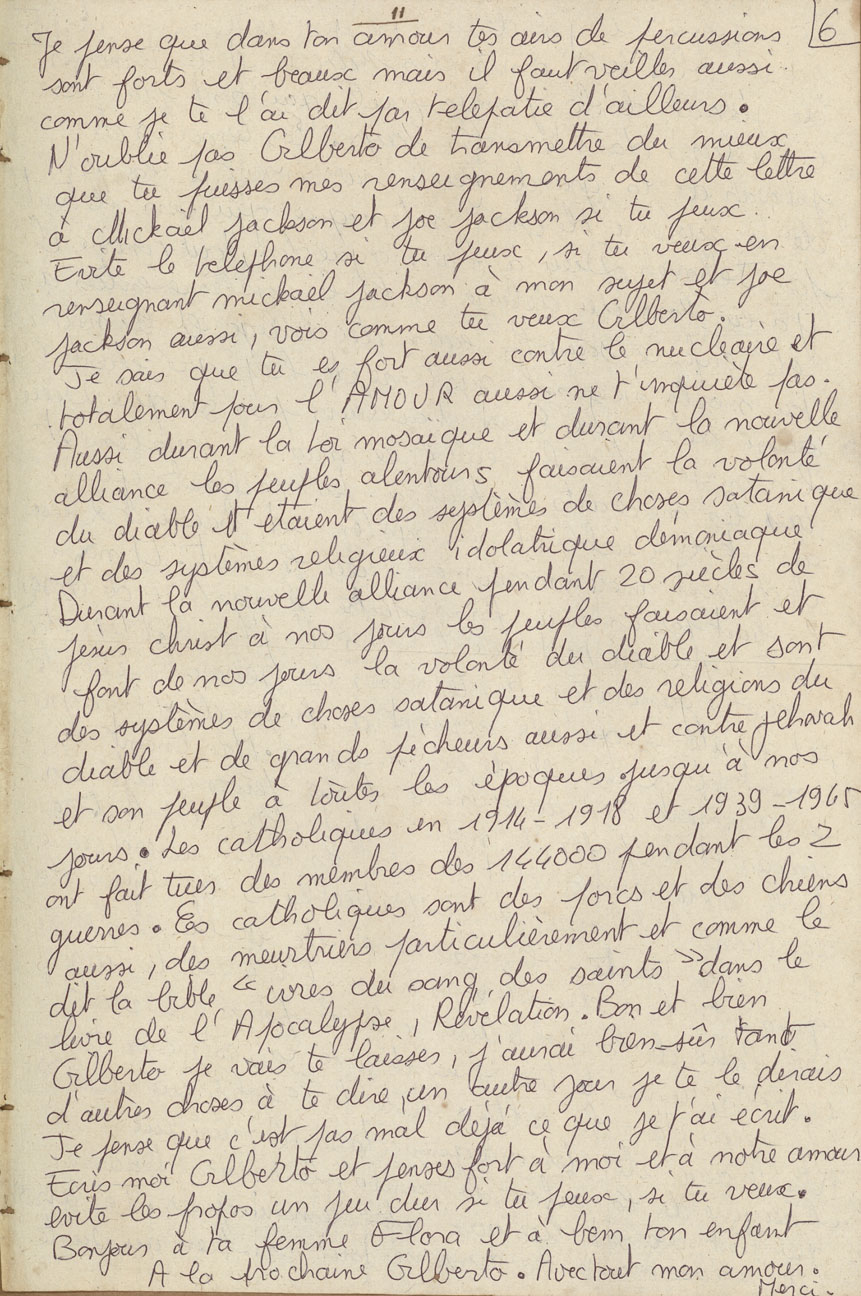 11
6
Je pense que dans ton amour tes airs de percussions
sont forts et beaux mais il faut veiller aussi
comme je te l'ai dit par telepatie d'ailleurs.
N'oublie pas Gilberto de transmettre du mieux
que tu puisses mes renseignements de cette lettre
à Mickaël Jackson et Joe Jackson si tu peux.
Evite le telephone si tu peux, si tu veux en
renseignant mickaël Jackson à mon sujet et Joe
Jackson aussi, vois comme tu veux Gilberto.
Je sais que tu es fort aussi contre le nucléaire et
totalement pour l'AMOUR aussi ne t'inquiète pas.
Aussi durant la Loi mosaïque et durant la nouvelle
alliance les peuples alentours faisaient la volonté
du diable et etaient des systèmes de choses satanique
et des systèmes religieux idolatrique démoniaque
Durant la nouvelle alliance pendant 20 siècles de
jésus christ à nos jours les peuples faisaient et
font de nos jours la volonté du diable et sont
des systèmes de choses satanique et des religions du
diable et de grands pécheurs aussi et contre Jehovah
et son peuple à toutes les époques jusqu'à nos
jours. Les catholiques en 1914-1918 et 1939-1945
ont fait tuer des membres des 144000 pendant les 2
guerres. Les catholiques sont des porcs et des chiens
aussi, des meurtriers particulièrement et comme le
dit la bible, "ivres du sang des saints" dans le
livre de l'Apocalypse, Révélation. Bon et bien
Gilberto je vais te laisser, j'aurai bien-sûr tant
d'autres choses à te dire, un autre jour je te le dirais
Je pense que c'est pas mal déjà ce que je t'ai écrit.
Ecris moi Gilberto et penses fort à moi et à notre amour
evite les propos un peu dur si tu peux, si tu veux.
Bonjour à ta femme Flora et à bem ton enfant
A la prochaine Gilberto. Avec tout mon amour.
Merci.